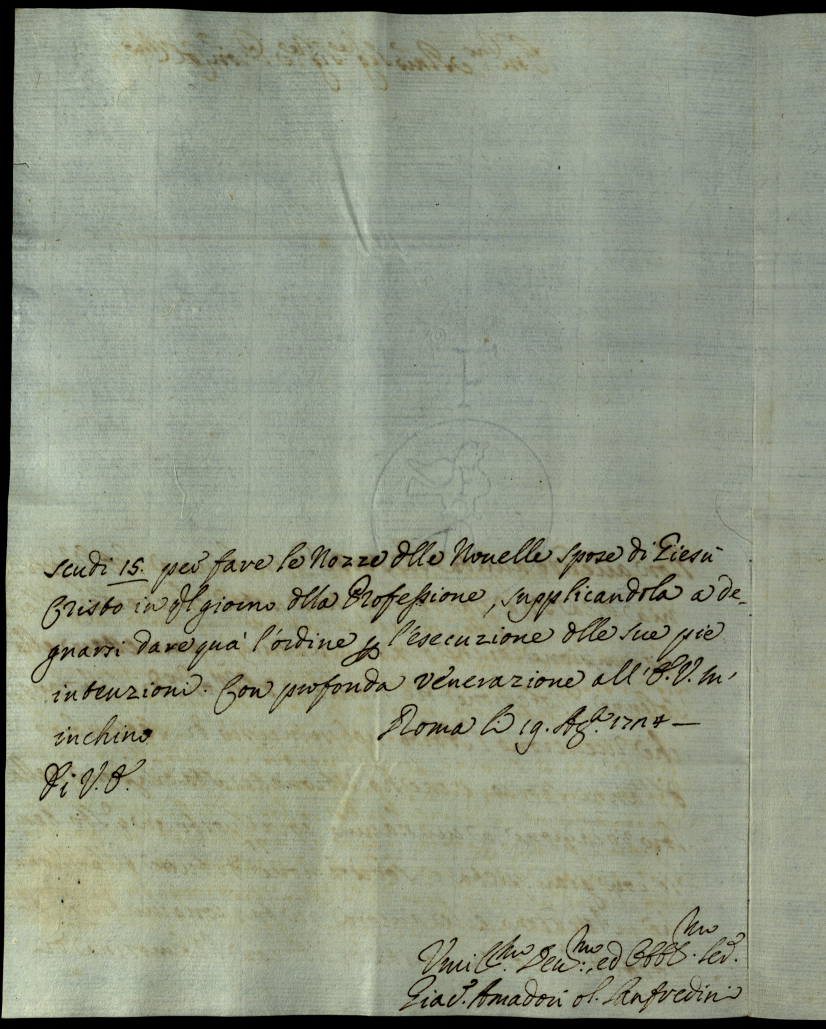 scudi 15. per fare le Nozze dlle Nouelle spose di Giesù
Cristo in ql giorno dlla Professione, supplicandola a de-
gnarsi dare quà l'ordine p l'esecuzione dlle sue pie
intenzioni. Con profonda venerazione all' E.V. m'
inchino Roma li 19. Agto.
Di V.E.
Umilmo. Deumo:, ed Obblmo. Ser.
Giac. Amadori ol. Lanfredini